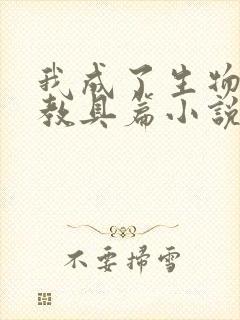 我成了生物
教具篇小說
不要掃雪